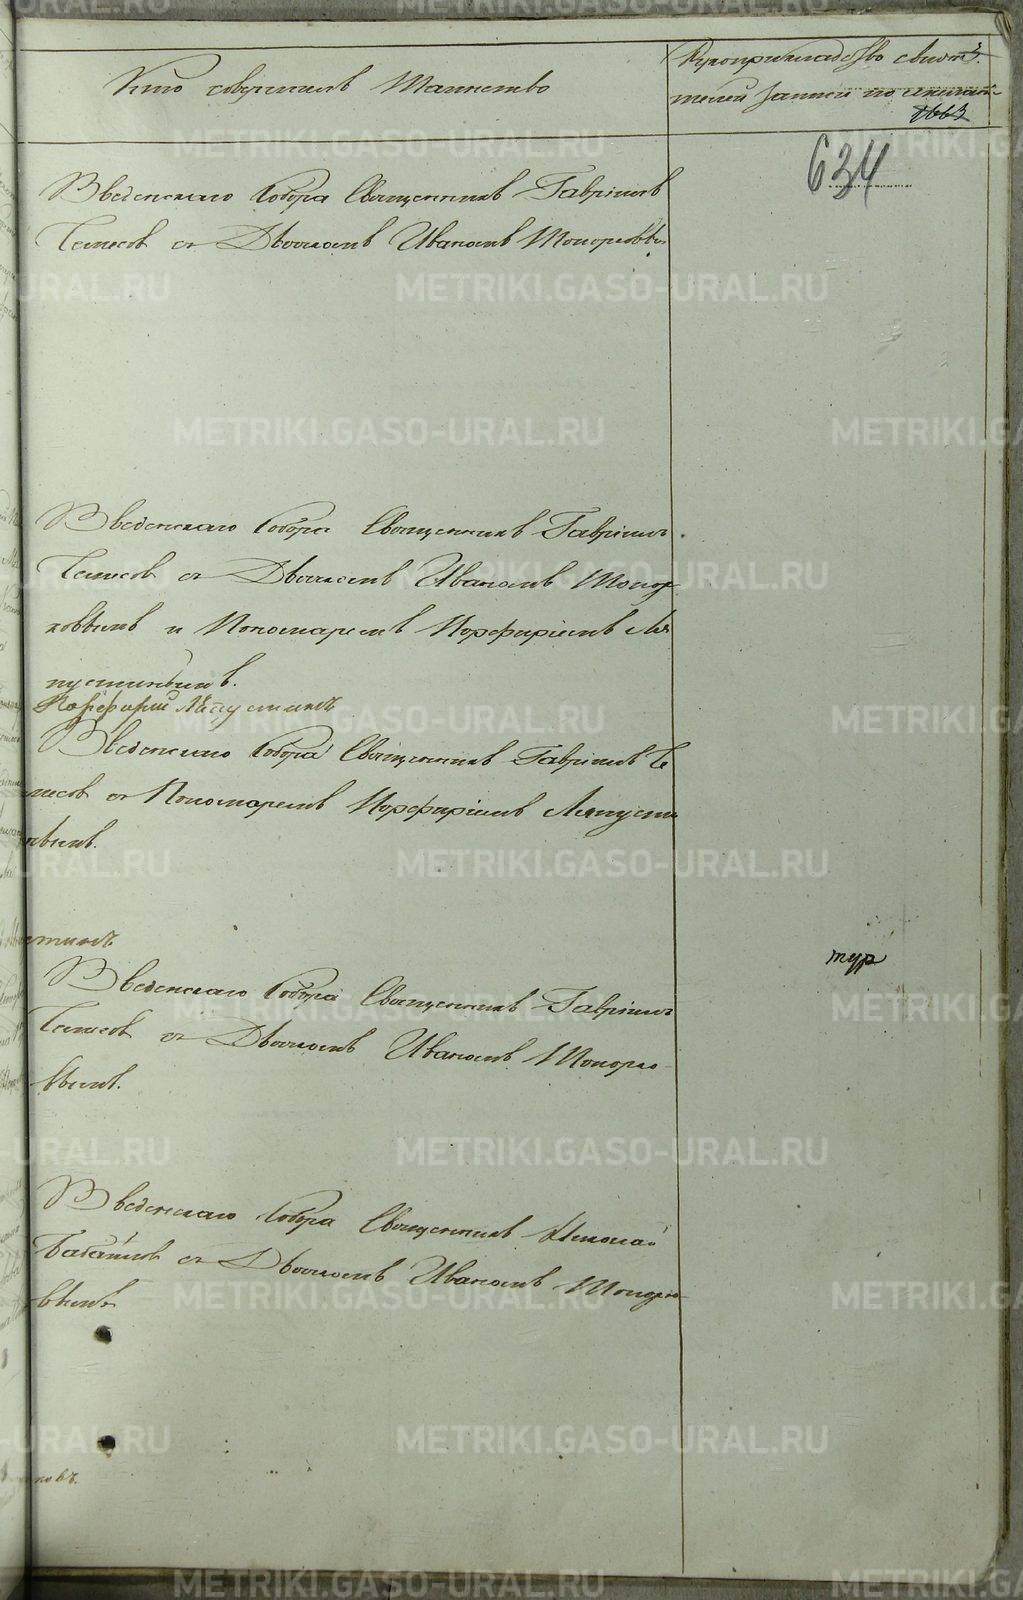 Кто совершалъ Таинство
Рукоприкладство свидѣ-
телей записи по желанію
634
Введенскаго Собора Священникъ Гавріилъ
съ Дьячкомъ Иваномъ Топорковымъ
Введенскаго Собора Священникъ Гавріилъ
съ Дьячкомъ Иваномъ Топор
ковымъ и Пономаремъ Порфиріемъ Ля
пустинымъ.
Порфирий Ляпустинъ
Введенскаго Собора Священникъ Гавріилъ
съ Пономаремъ Порфиріемъ Ляпусти
нымъ.
Введенскаго Собора Священникъ Гавріилъ
съ Дьячкомъ Иваномъ Топорко
вымъ.
Введенскаго Собора Священникъ Николай
съ Дьячкомъ Иваномъ Топорко
вымъ
METRIKI.GASO-URAL.RU